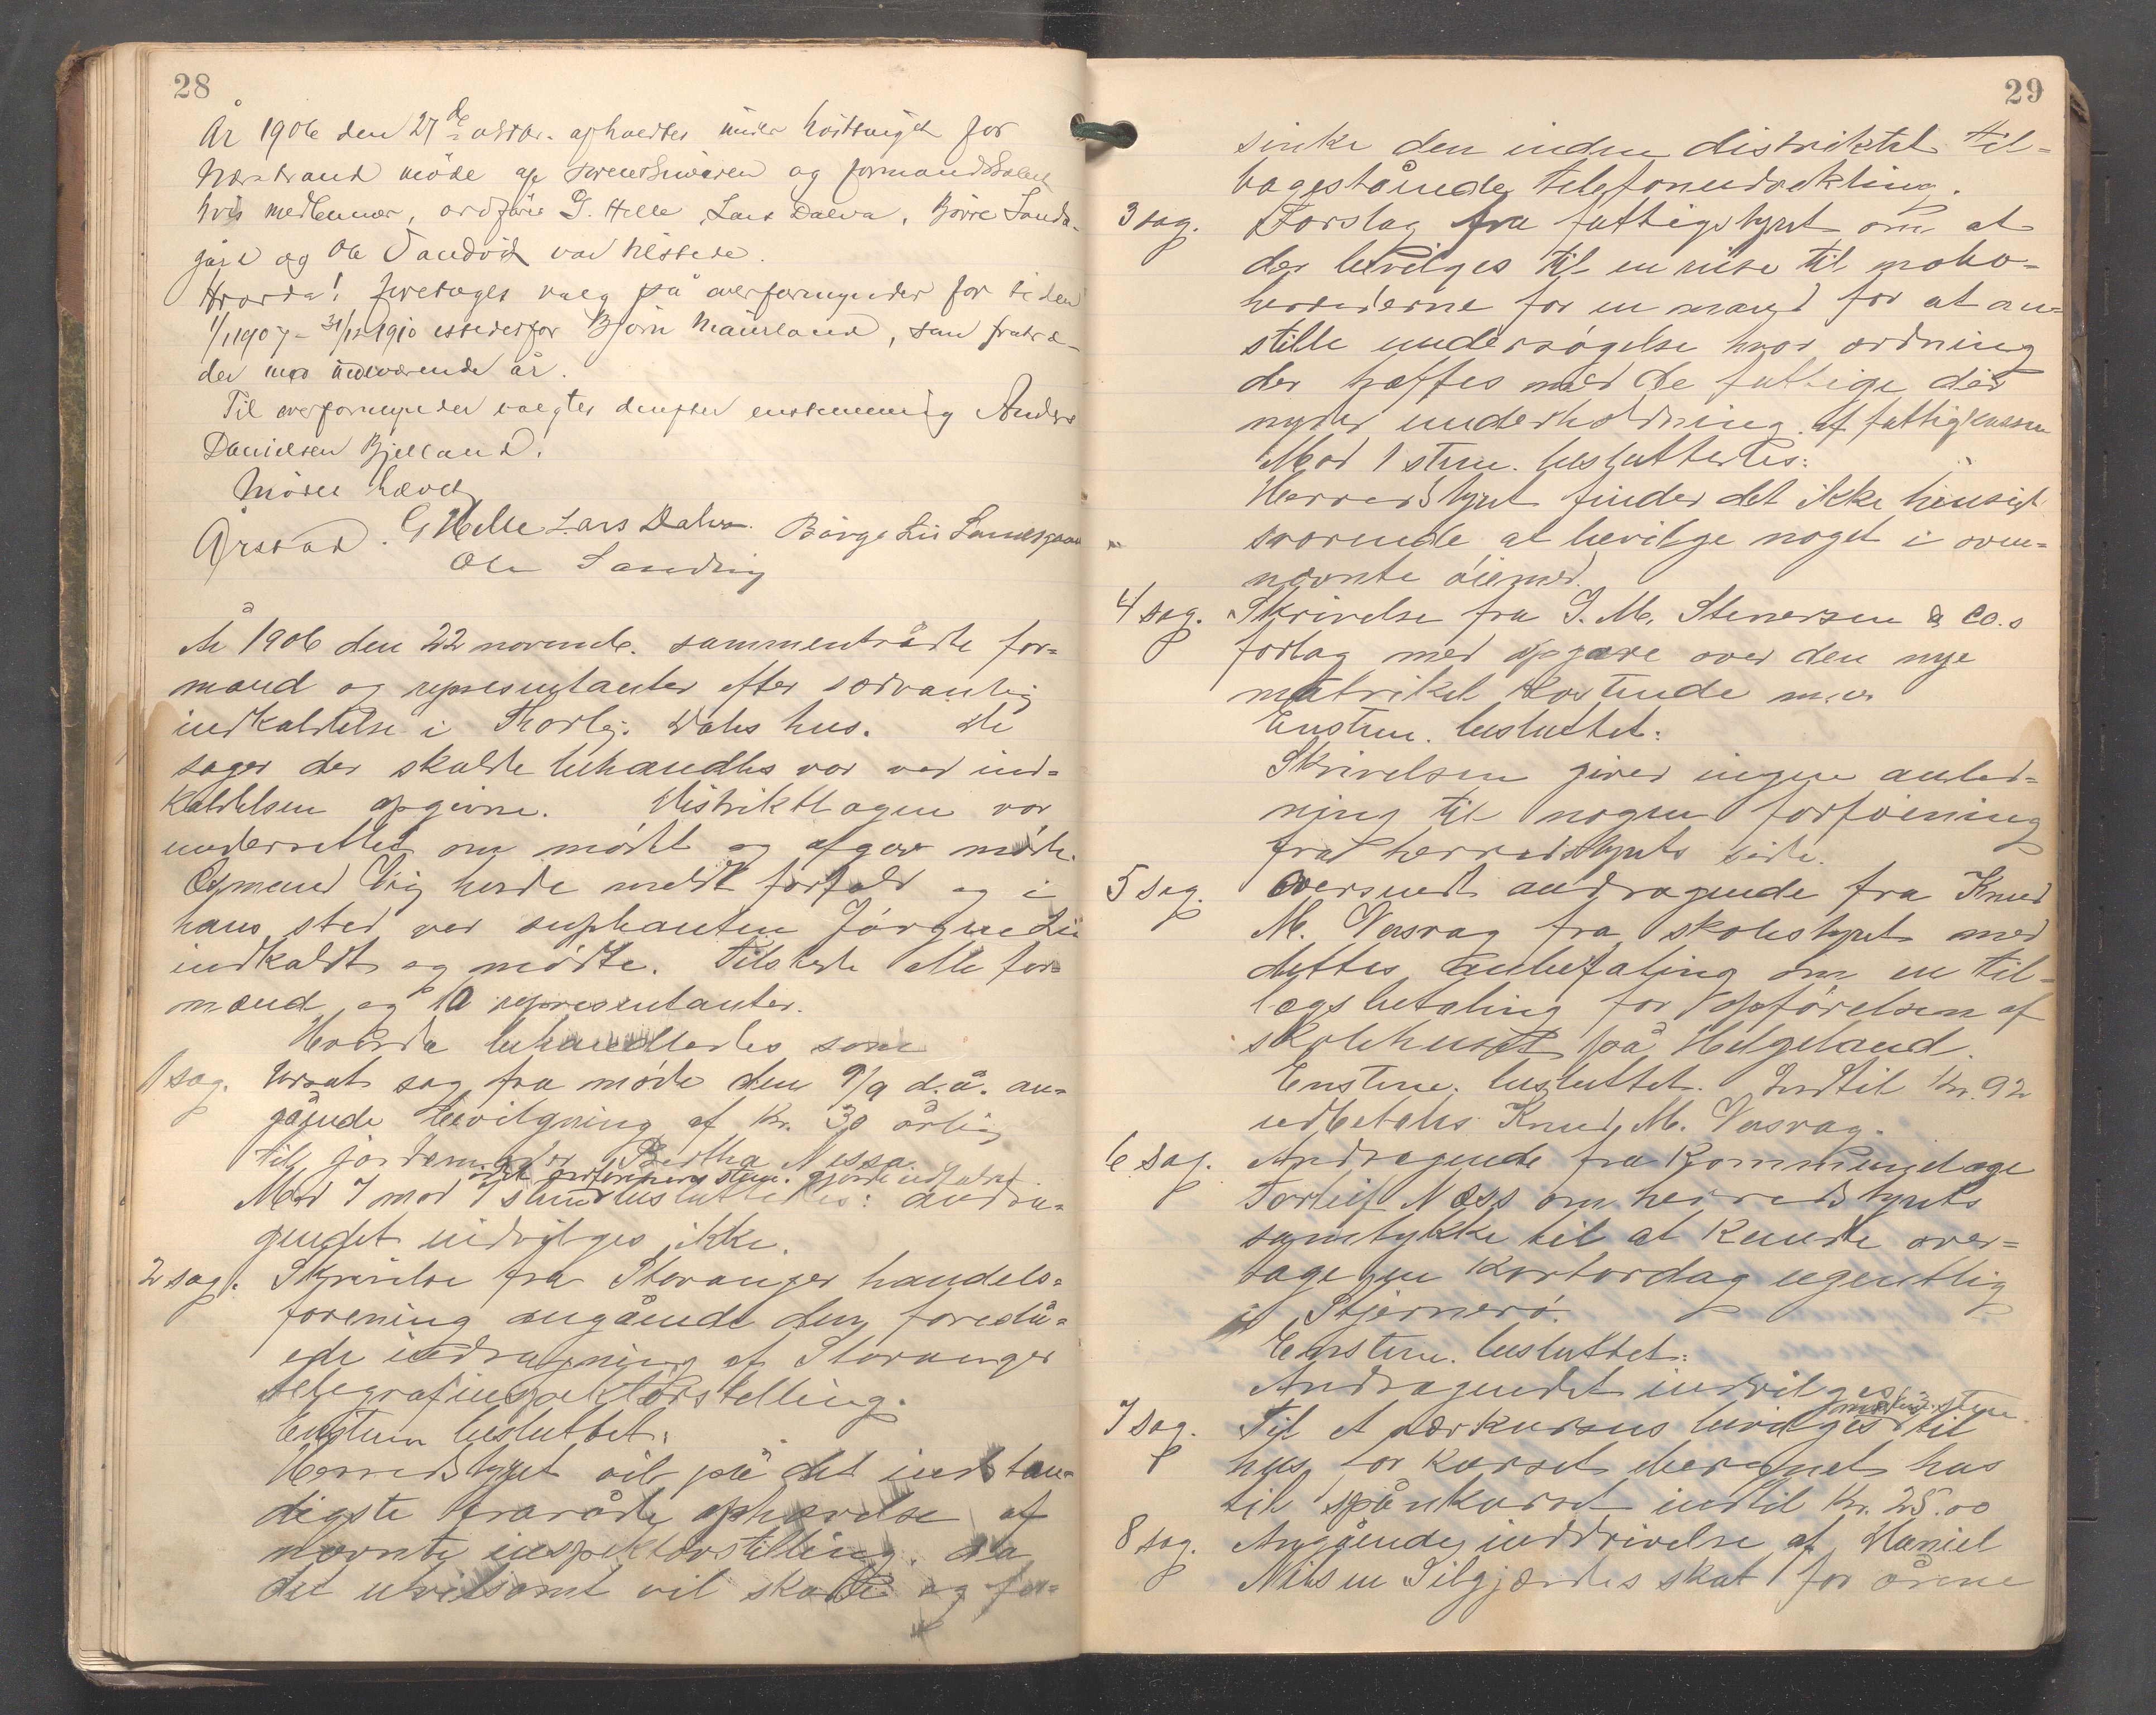 28
År 1906 den 27de oktbr. afholdtes under høsttinget for
Nærstrand møde af sorenskriveren og formandskabet
hvis medlemmer, ordfører G. Helle, Lars Dalva, Børre Landa-
gård og Ole Sandvik var tilstede.
Hvorda! foretoges valg på overformynder for tiden
1/1 1907 - 31/12 1910 istedetfor Bjørn Maurland, som fratræ-
der med indeværende år.
Til overformynder valgtes derefter enstemmig Anders
Danielsen Bjelland.
Mødet hævet
Årstad. G Helle Lars Dalva. Børge Lii
Ole Sandvig
År 1906 den 22 novemb. sammentrådte for-
mænd og representanter efter sædvanlig
indkaldelse i Thorbj. Dahs hus. De
sager der skulde behandles var ved ind-
kaldelsen opgivne. Distriktlægen var
underrettet om mødet og afgav møde.
Ogmand Vig havde meldt forfald og i
hans sted var suplianten Jørgen Lii
indkaldt og mødte. Tilstede alle for-
mænd og 10 representanter.
Hvorda behandledes som
1 sag. Udsat sag fra møde den 9/9 d.å. an-
gående bevilgning af Kr. 30 årlig
til jordemoder Bertha Nessa.
idet ordførerens stem. gjorde udfaldet
Med 7 mod 7 stem besluttedes: andra-
gendet indvilges ikke.
2 sag. Skrivelse fra Stavanger handels-
forening angående den foreslå-
ede inddragning af Stavanger
telegrafinspektørstelling.
Enstem besluttet:
Herredstyret vil på det indstæn-
digste fraråde ophævelse af
nævnte inspektørstilling, da
det utvilsomt vil skade og for-
29
sinke den inden distriktet til-
bagestående telefonudvikling.
3 sag. Forslag fra fattigstyret om at
der bevilges til en reise til nabo-
herrederne for en mand for at an-
stille undersøgelse hvor ordning
der træffes med de fattige der
nyder underholdning af fattigkassen
Mod 1 stem. besluttedes:
Herredstyret finder det ikke hensigt
svarende at bevilge noget i oven-
nævnte øiemed.
4 sag. Skrivelse fra J. M. Stenersen & Co.s
forlag med opgave over den nye
matrikel kostende m.v.
Enstem. besluttet:
Skrivelsen giver ingen anled-
ning til nogen forføining
fra herredstyrets side.
5 sag. Oversendt andragende fra Knud
M. Vasvag fra skolestyret med
dettes anbefaling om en til-
lægsbetaling for opførelsen af
skolehuset på Helgeland.
Enstem. besluttet. Indtil Kr. 92
udbetales Knud M. Vasvag.
6 sag. Andragende fra Kommunelæge
Torleif Næss om herredstyrets
samtykke til at kunde over-
tage en kontordag ugentlig
i Stjernerø.
Enstem. besluttet:
Andragendet indvilges
7 sag. Til et vævkursus bevilges mod 3 stem. til
hus for kurset beregnet hus
til spånkurset indtil Kr. 25.00
8 sag. Angående inddrivelse af Daniel
Nilsen Silgjærdes skat for årene